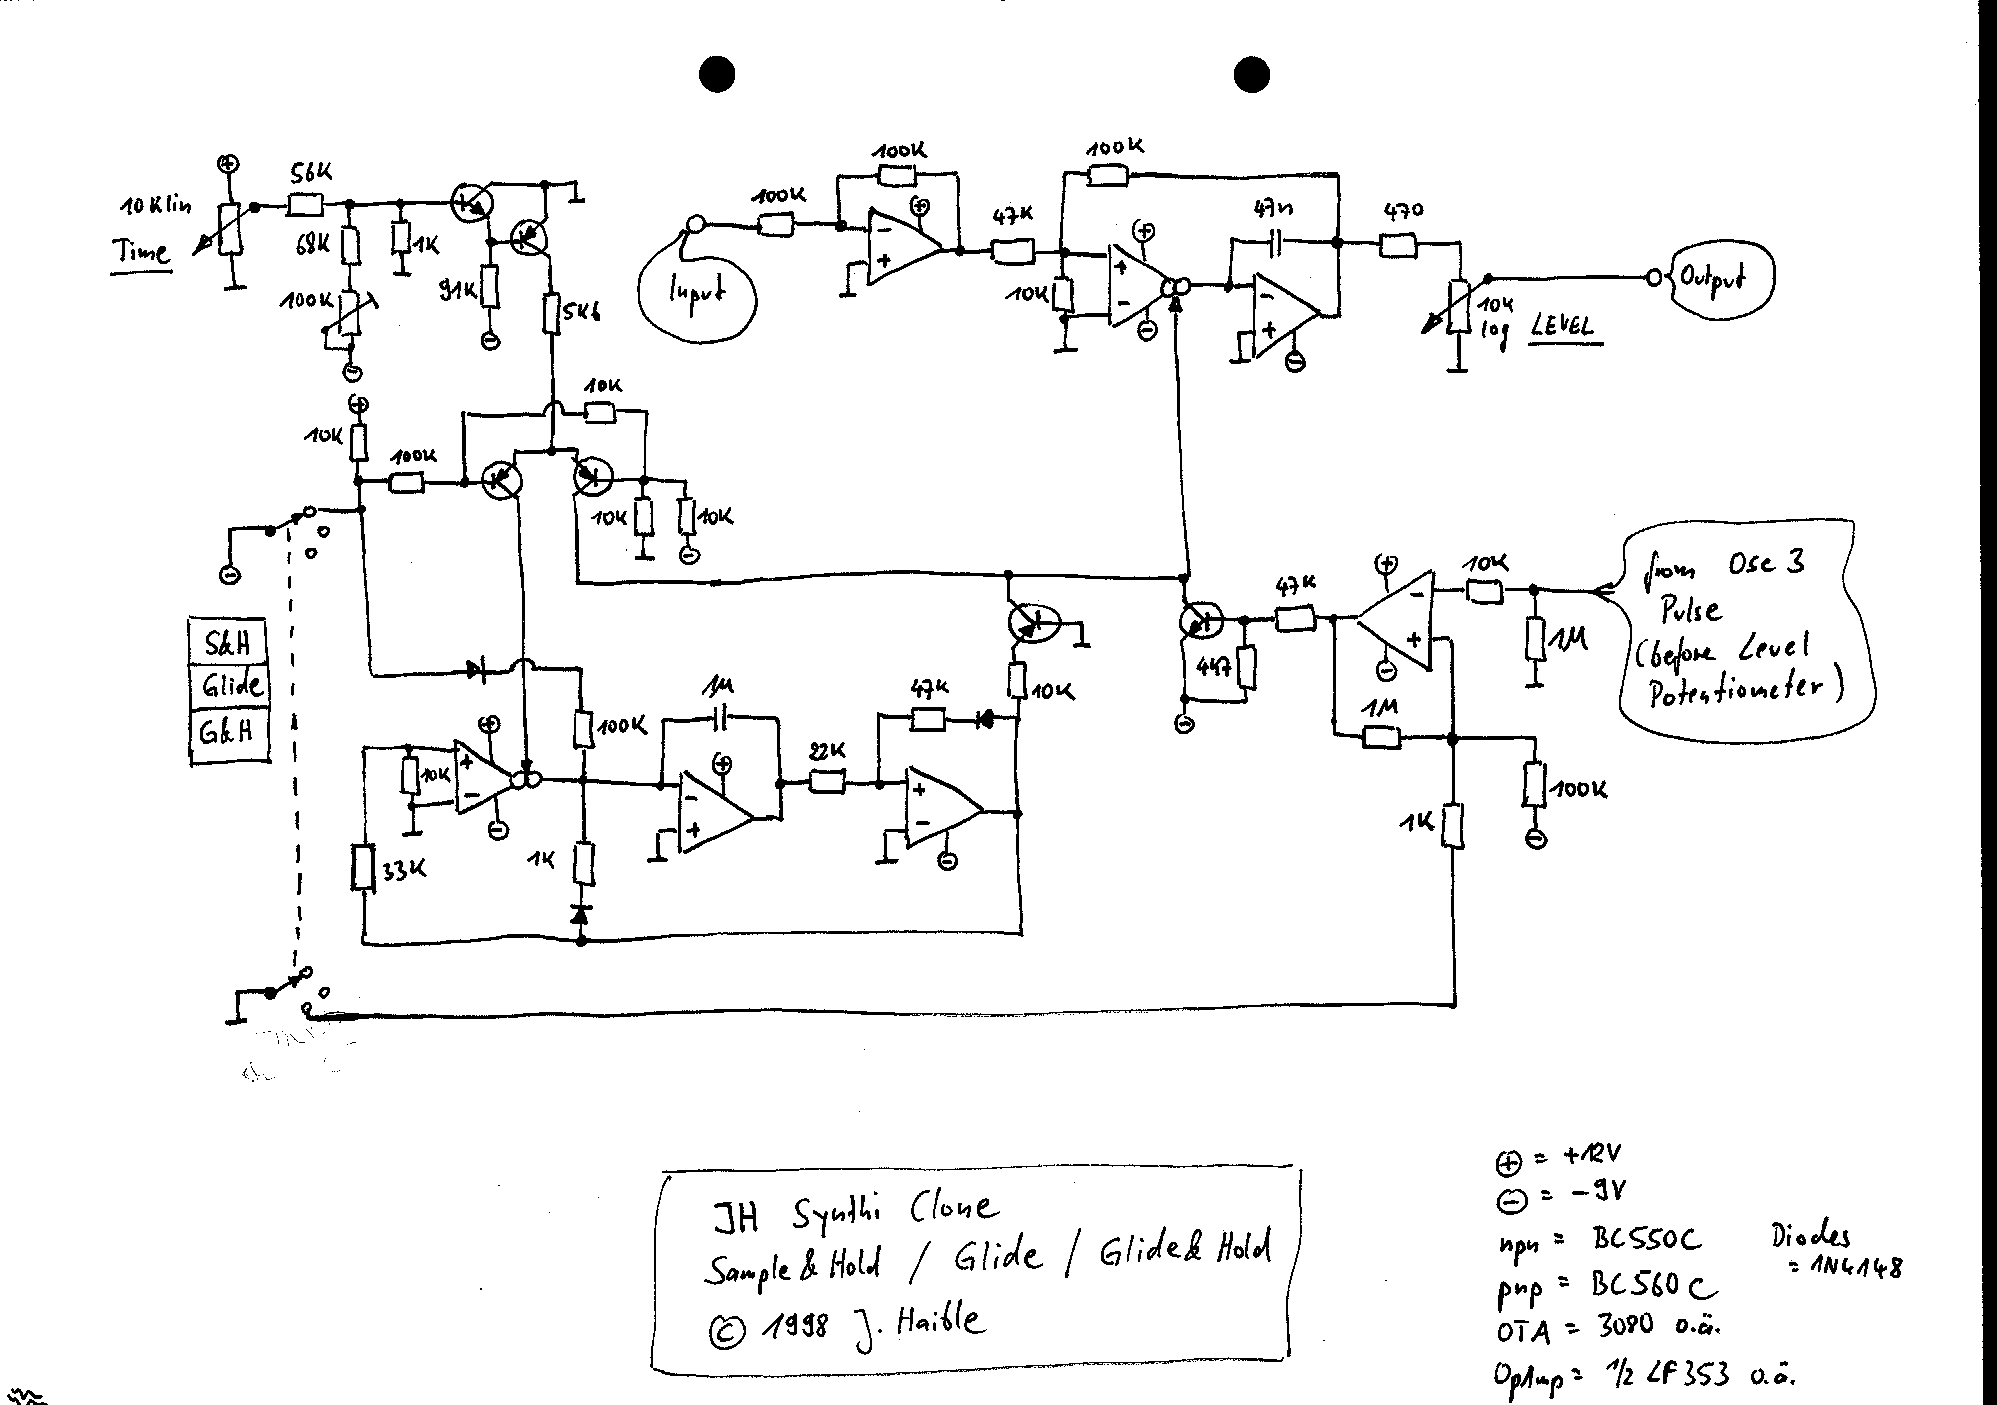 10Klin
Time
56K
68K
1K
100K
91K
5K6
Input
100K
100K
47K
10K
100K
47n
470
10K
log
LEVEL
Output
10K
100K
10K
10K
10K
S&H
Glide
G&H
10K
33K
100K
1K
1µ
22K
47K
10K
47K
4k7
10K
1M
1M
100K
1K
from Osc 3
Pulse
(before Level
Potentiometer)
JH Synthi Clone
Sample&Hold / Glide / Glide&Hold
© 1998 J. Haible
⊕ = +12V
⊖ = -9V
npn = BC550C
pnp = BC560C
OTA = 3080 o.ä.
OpAmp = 1/2 LF353 o.ä.
Diodes
= 1N4148